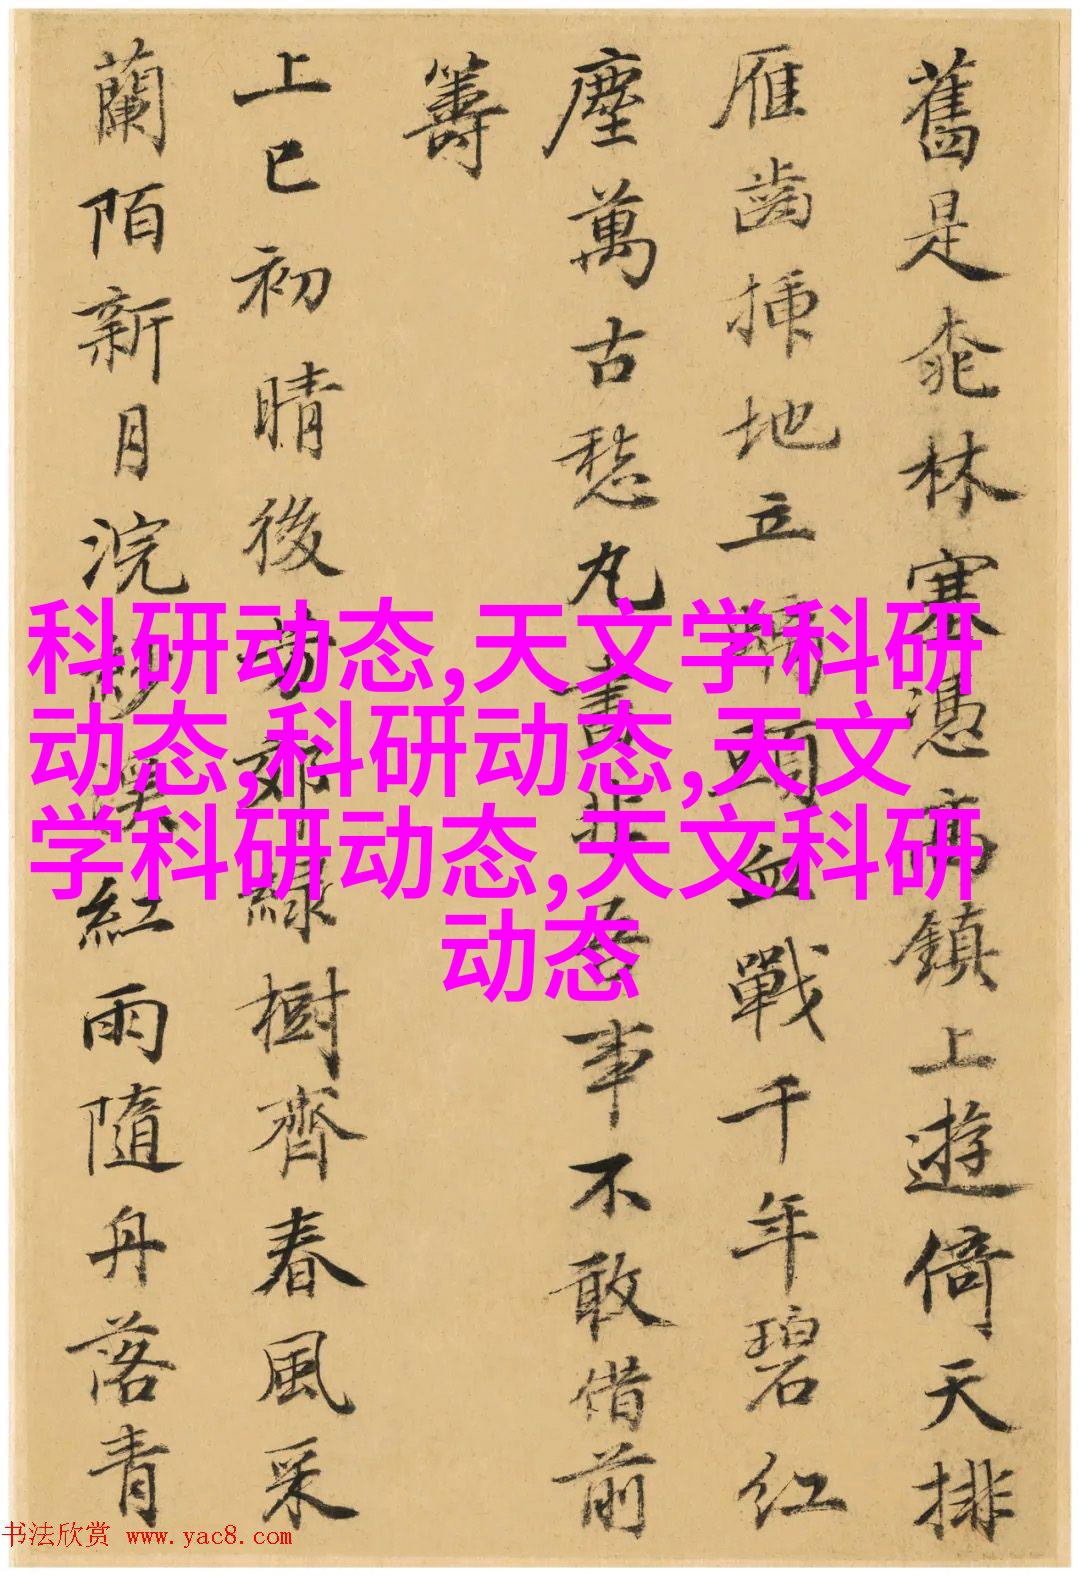 舊是桃林塞憑高鎮上遊倚天排
雁齒插地立頭血戰千年碧紅
塵萬古愁丸書非吾事不敢借前
籌
上巳初晴後芳郊綠樹齊春風采
蘭陌新月浣紗溪紅雨隨舟落青
科研动态,天文学科研
动态,科研动态,天文
学科研动态,天文科研
动态
书法欣赏 www.yac8.com